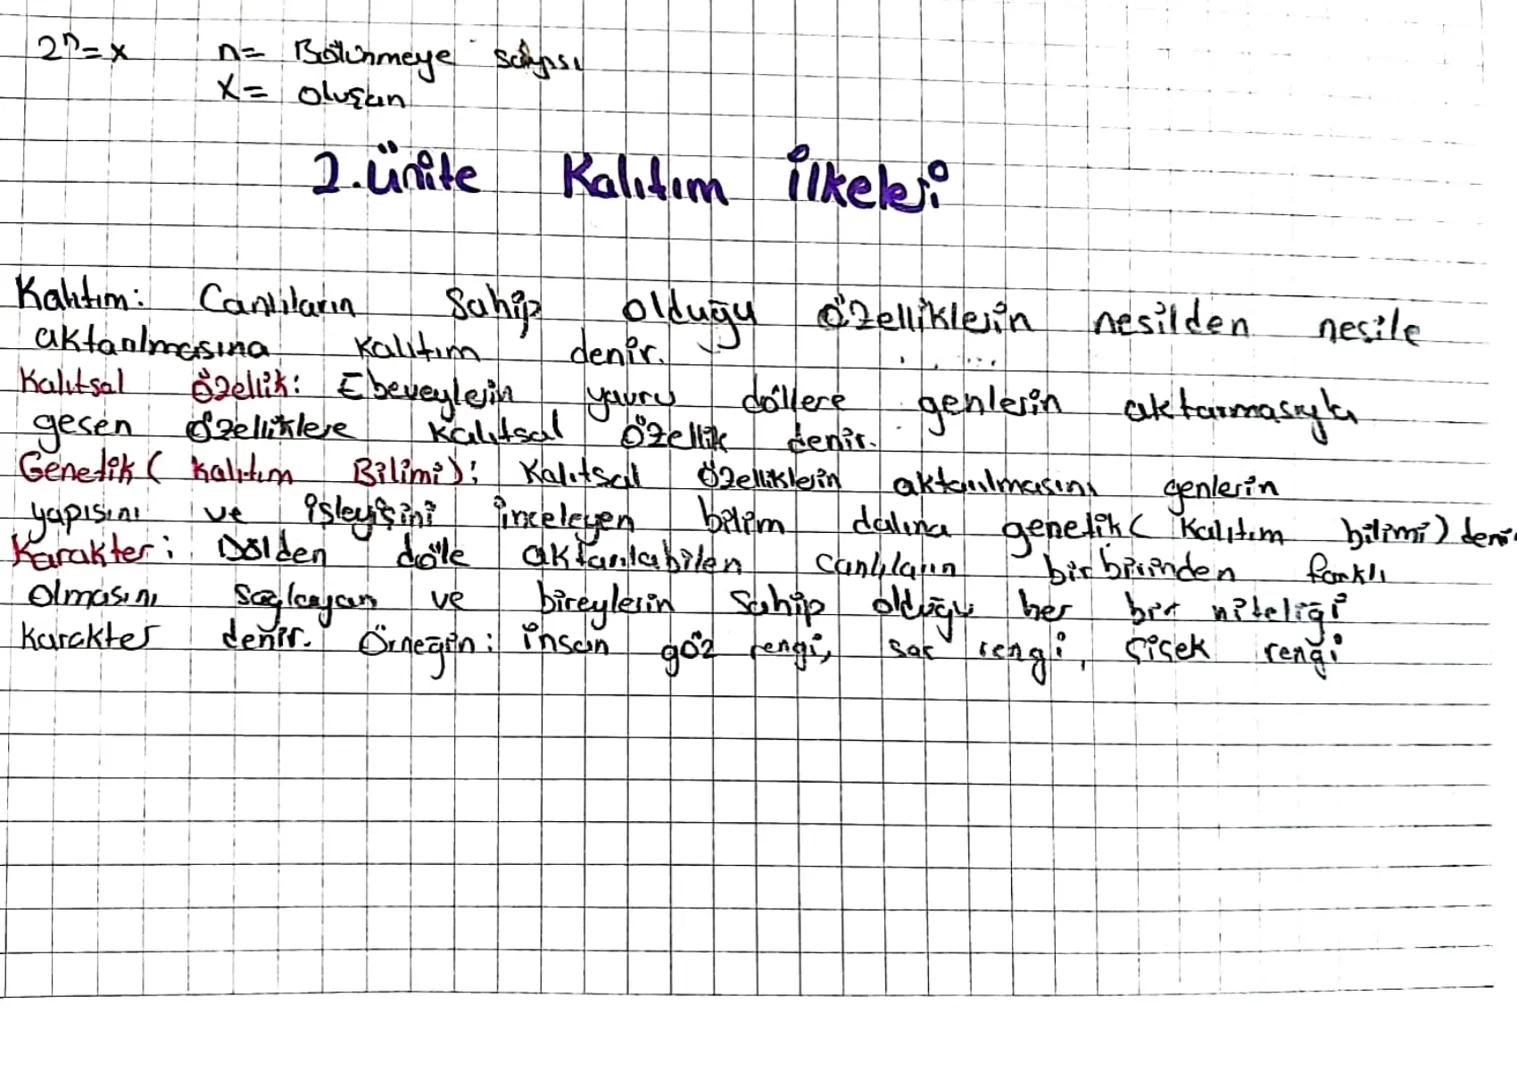 2ⁿ=x n= Bölünmeye sayısı
X= oluşan
2.ünite Kalıtım İlkeleri
Kalıtım: Canlıların Sahip olduğu özelliklerin nesilden nesile
aktarılmasına kalıtım denir.
Kalıtsal özellik: Ebeveylerin yavru döllere genlerin aktarmasıyla
geçen özelliklere kalıtsal özellik denir.
Genetik ( kalıtım Bilimi): Kalıtsal özelliklerin aktarılmasını genlerin
yapısını ve işleyişini inceleyen bilim dalına genetik ( Kalıtım bilimi) denir
Karakter: Dölden döle aktarılabilen canlıların birbirinden farklı
olmasını sağlayan ve bireylerin sahip olduğu her bir niteliği
karakter denir. Örneğin: insan göz rengi, saç rengi, çiçek rengi